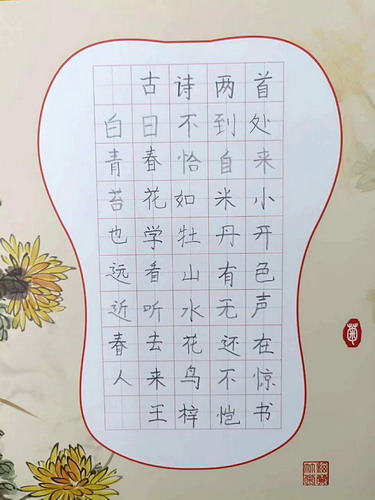 古诗两首
白日不到处
青春恰自来
苔花如米小
也学牡丹开
远看山有色
近听水无声
春去花还在
人来鸟不惊
王梓恺书